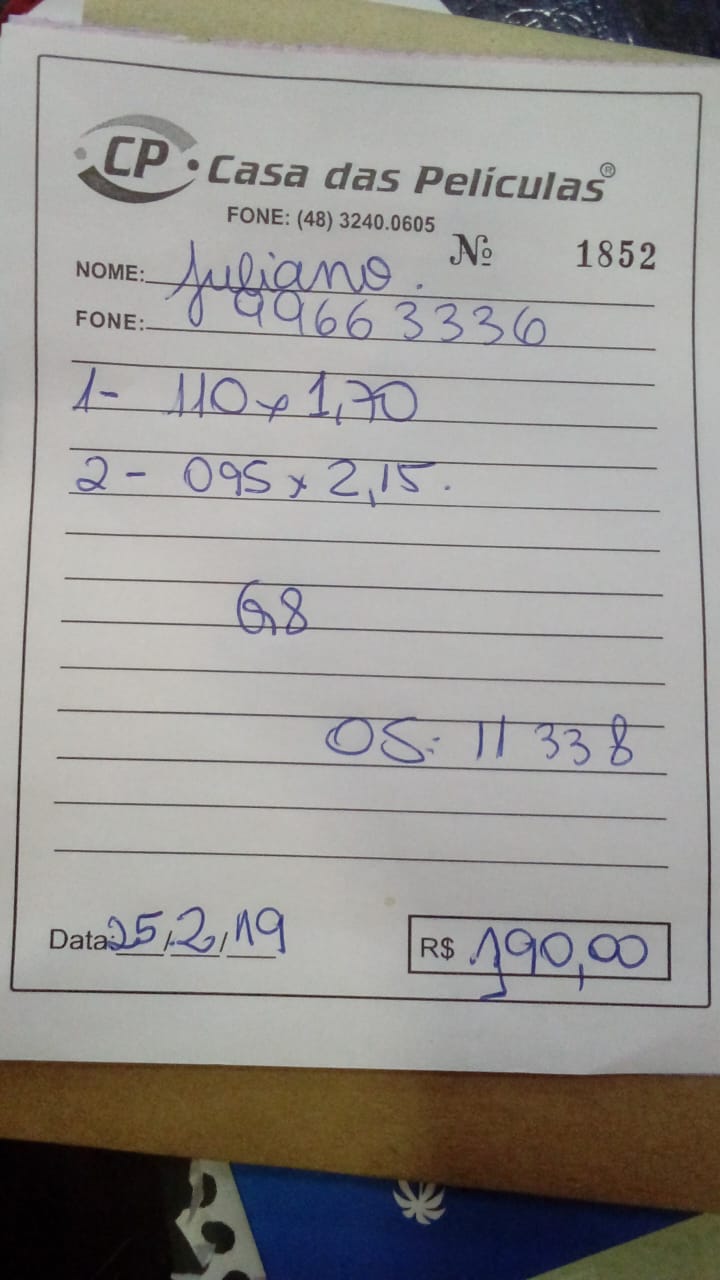 CP • Casa das Películas®
FONE: (48) 3240.0605
Nº 1852
NOME: Juliano.
FONE: 99663336
1- 110 x 1,70
2 - 095 x 2,15.
G,8
OS: 11338
Data: 25/2/19
R$ 190,00